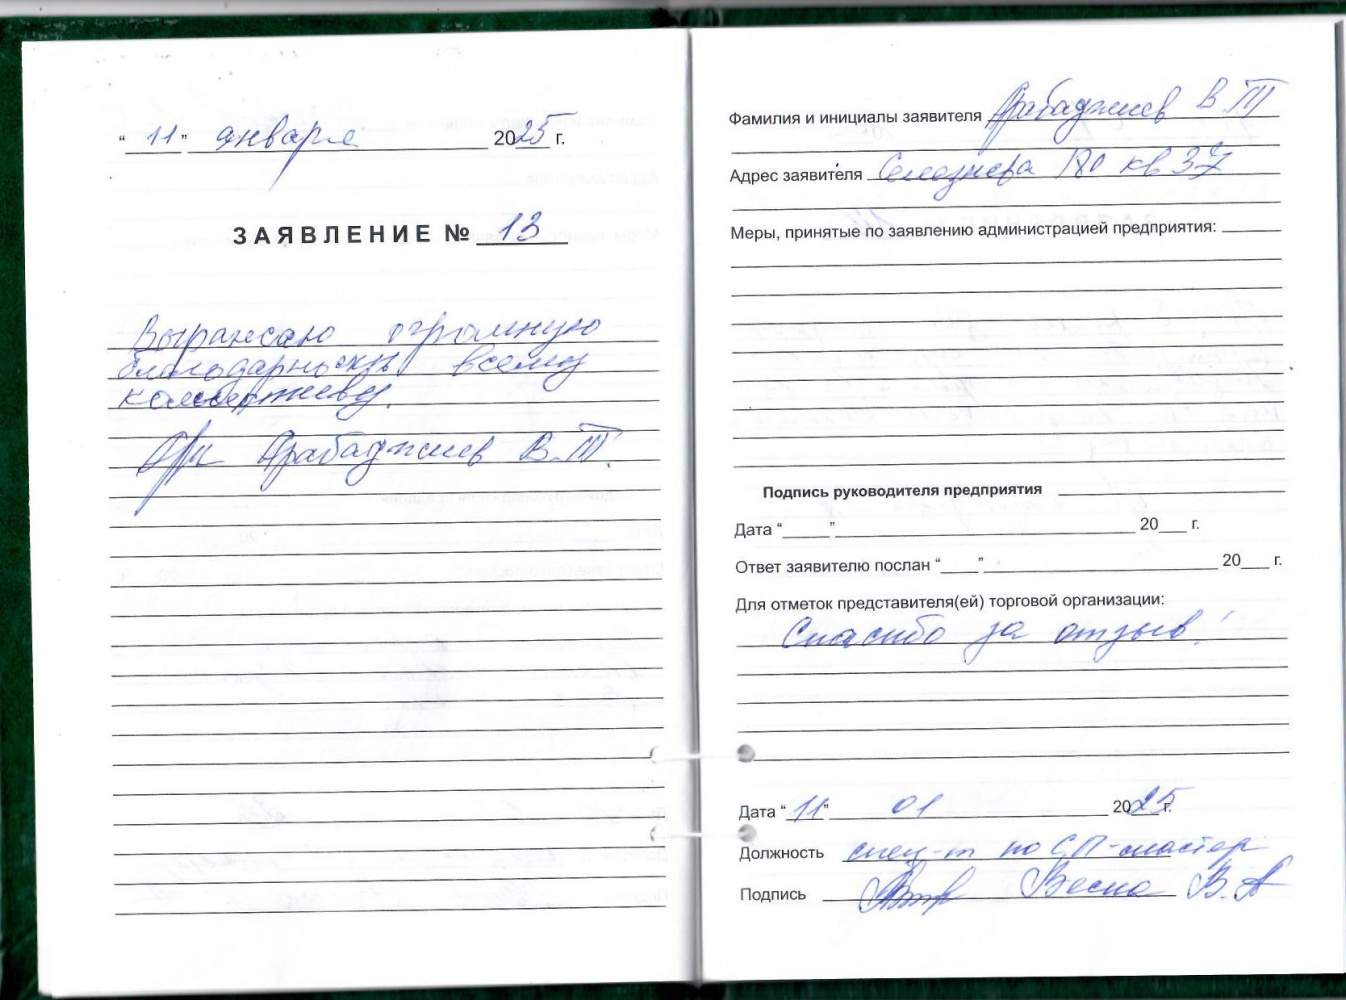 “ 11 ” января 2025 г.
ЗАЯВЛЕНИЕ № 13
Выражаю огромную
благодарность всему
коллективу.
Арабаджиев В.Т.
Фамилия и инициалы заявителя Арабаджиев В Т
Адрес заявителя Селезнева 180 кв 37
Меры, принятые по заявлению администрацией предприятия:
Подпись руководителя предприятия
Дата “ ” 20 г.
Ответ заявителю послан “ ” 20 г.
Для отметок представителя(ей) торговой организации:
Спасибо за отзыв!
Дата “ 11 ” 01 2025 г.
Должность спец-т по СП-мастер
Подпись Весна В.А